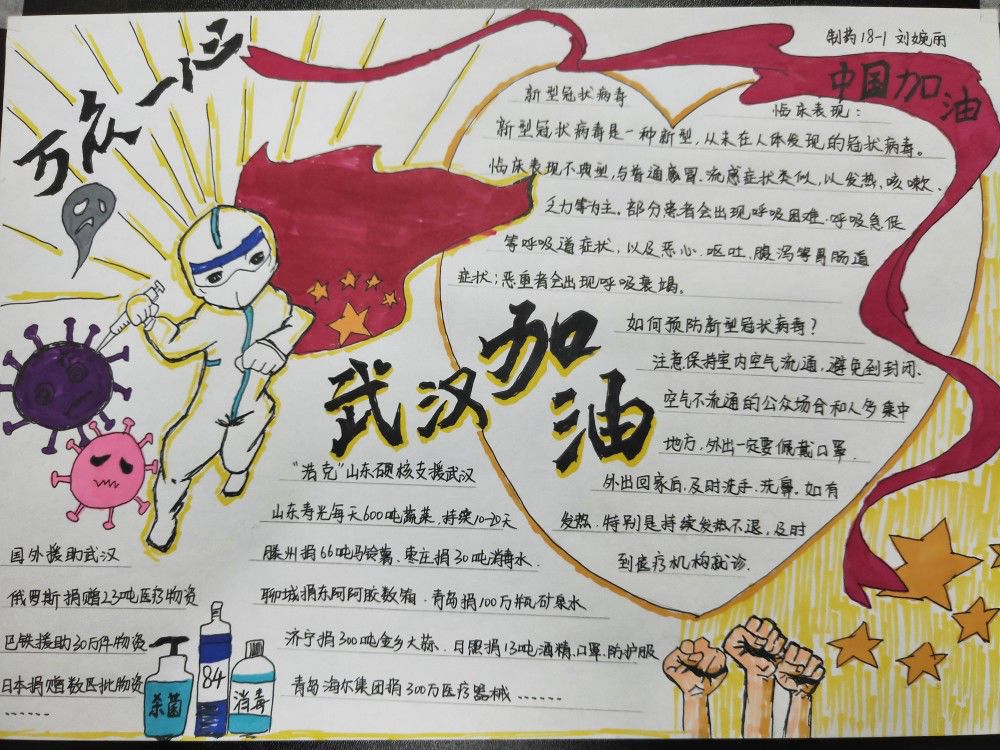 万众一心
制药18-1 刘婉丽
中国加油
新型冠状病毒
临床表现：
新型冠状病毒是一种新型，从未在人体发现的冠状病毒。
临床表现不典型，与普通感冒、流感症状类似，以发热、咳嗽、
乏力等为主，部分患者会出现呼吸困难、呼吸急促
等呼吸道症状，以及恶心、呕吐、腹泻等胃肠道
症状；恶重者会出现呼吸衰竭。
武汉加油
如何预防新型冠状病毒？
注意保持室内空气流通，避免到封闭、
空气不流通的公众场合和人多集中
地方，外出一定要佩戴口罩.
外出回家后，及时洗手、洗鼻。如有
发热、特别是持续发热不退，及时
到医疗机构就诊.
“浩克”山东硬核支援武汉
山东寿光每天600吨蔬菜，持续10-20天
滕州捐66吨马铃薯、枣庄捐30吨消毒水.
聊城捐东阿阿胶数箱、青岛捐100万瓶矿泉水
济宁捐300吨金乡大蒜、日照捐13吨酒精、口罩、防护服
青岛海尔集团捐300万医疗器械……
国外援助武汉
俄罗斯捐赠23吨医疗物资
巴铁援助30万件物资
日本捐赠数匹批物资
……
杀菌
84
消毒